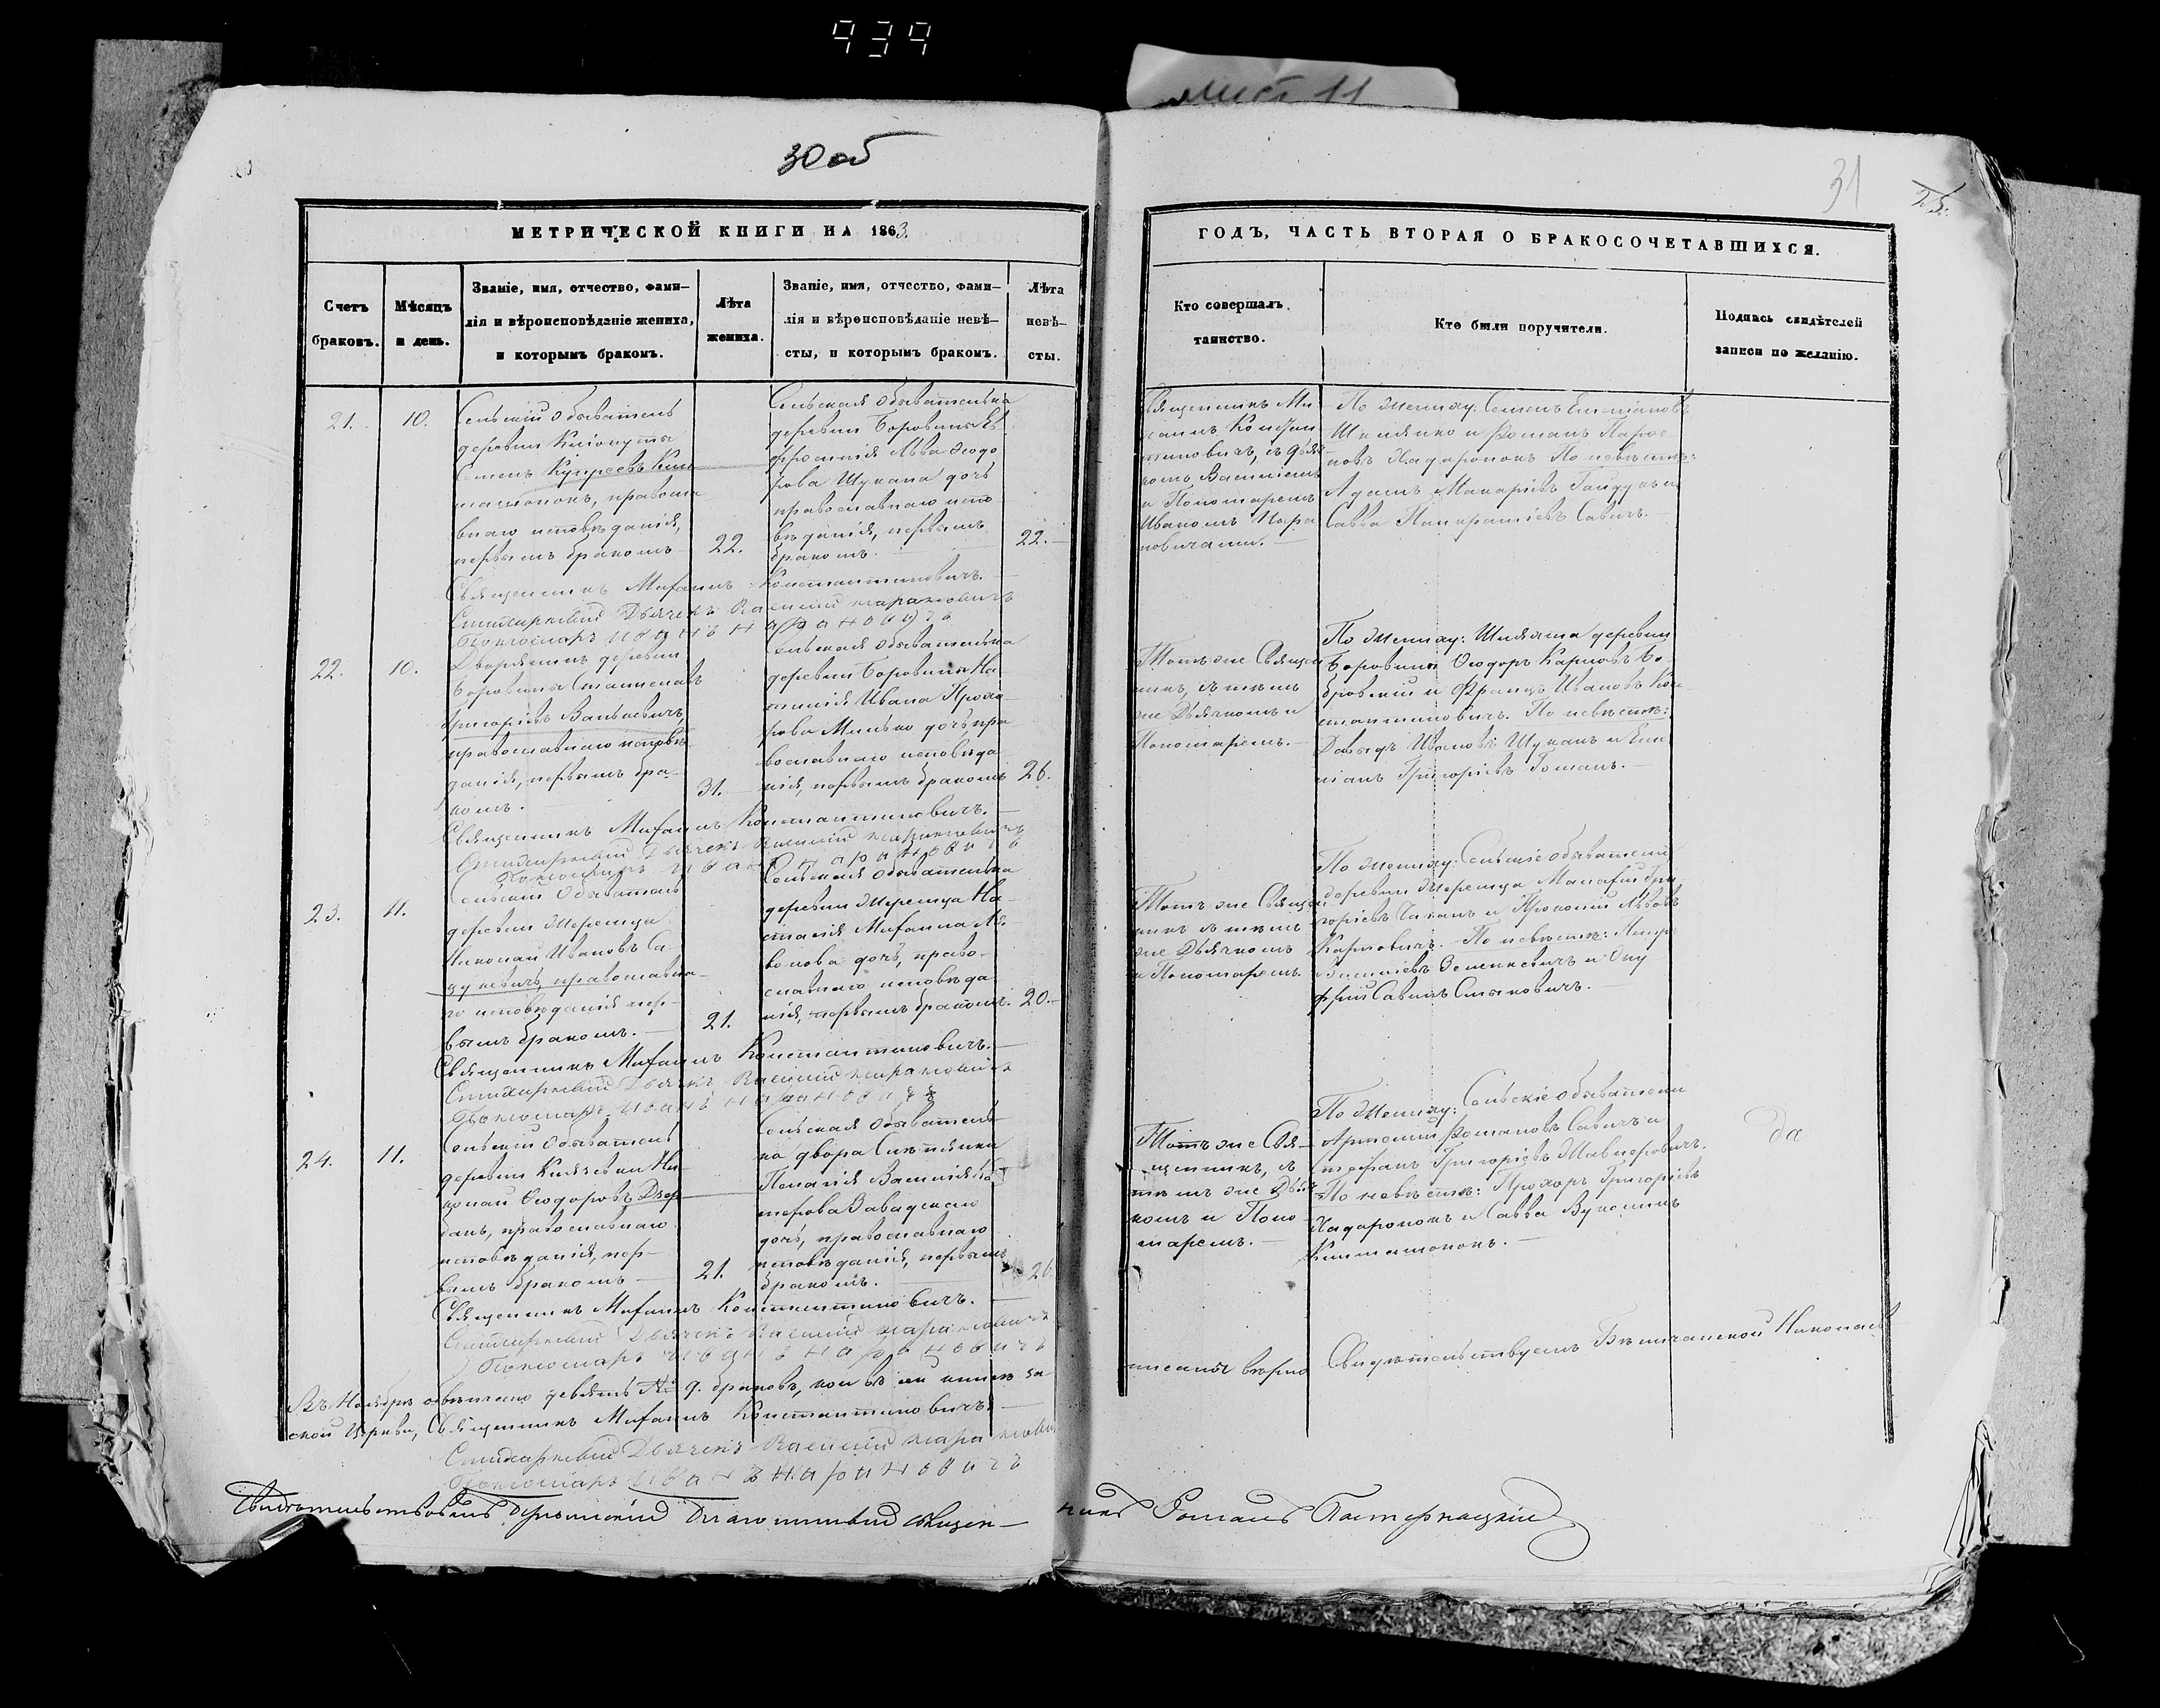 939
лист 11
30 об
31
25.
МЕТРИЧЕСКОЙ КНИГИ НА 1863.
ГОДЪ, ЧАСТЬ ВТОРАЯ О БРАКОСОЧЕТАВШИХСЯ.
Счетъ
браковъ.
Мѣсяцъ
и день.
Званіе, имя, отчество, фами-
лія и вѣроисповѣданіе жениха,
и которымъ бракомъ.
Лѣта
жениха.
Званіе, имя, отчество, фами-
лія и вѣроисповѣданіе невѣ-
сты, и которымъ бракомъ.
Лѣта
невѣ-
сты.
Кто совершалъ
таинство.
Кто были поручители.
Подпись свидѣтелей
записи по желанію.
21.
10.
Сельскій обыватель
деревни
Семенъ
православ
внаго исповѣданія,
первымъ бракомъ
22.
Сельская обывателька
деревни Боровины Ев
фросинія Льва Ѳеодо
рова Шукана дочь
православнаго испо
вѣданія, первымъ
бракомъ.
22.
Священникъ Ми
хаилъ Констан
тиновичъ, съ дьяч
комъ Василіемъ
и Пономаремъ
Иваномъ Нара
новичами.
По женихѣ: Семенъ Емеліановъ
и Романъ
По невѣстѣ:
Адамъ Макаріевъ Гайдукъ и
Савва Панкратіевъ Савичъ.
Священникъ Михаилъ Константиновичъ.
Стихарный Дьячекъ Василій Нарановичъ
Пономарь Иванъ Нарановичъ
22.
10.
Дворянинъ деревни
Боровины Станиславъ
ГригоріевъВанькевичъ,
православнаго исповѣ
данія, первымъ бра-
комъ.
31.
Сельская обывателька
деревни Боровины На
талія Ивана Прохо
рова Минько дочь, пра
вославнаго исповѣда
нія, первымъ бракомъ
26.
Тотъ же Священ
никъ, съ тѣмъ
же Дьячкомъ и
Пономаремъ.
По женихѣ: Шляхта деревни
Боровины Ѳеодоръ Карповъ Бо
бровскій и Францъ Ивановъ Кон
стантиновичъ. По невѣстѣ:
Давыдъ Ивановъ Шуканъ и Еми
ліанъ Григоріевъ Гоманъ.
Священникъ Михаилъ Константиновичъ.
Стихарный Дьячекъ Василій Нарановичъ
Пономарь Иванъ Нарановичъ
23.
11.
Сельскій обыватель
деревни Жеребца
Николай Ивановъ Са-
цукевичъ, православна-
го исповѣданія пер-
вымъ бракомъ.
21.
Сельская обывателька
деревни На
стасія Михаила
дочь, право-
славнаго исповѣда
нія, первымъ бракомъ.
20.
Тотъ же Священ
никъ съ тѣмъ
же Дьячкомъ
и Пономаремъ.
По женихѣ: Сельскіе обыватели
деревни Макарій Гри
горіевъ и Прокопій Львовъ
Карповичъ. По невѣстѣ: Петръ
Василіевъ Зенькевичъ и Ону
фрій Савинъ
Священникъ Михаилъ Константиновичъ.
Стихарный Дьячекъ Василій Нарановичъ
Пономарь Иванъ Нарановичъ
24.
11.
Сельскій обыватель
деревни Князевки Ни
колай Ѳеодоровъ Дзер
банъ, православнаго
исповѣданія, пер-
вымъ бракомъ
21.
Сельская обыватель
ка двора
Пелагія Василія
Завадскаго
дочь, православнаго
исповѣданія, первымъ
бракомъ.
20.
Тотъ же Свя-
щенникъ, съ
тѣмъ же Дьяч
комъ и Поно-
маремъ.
По женихѣ: Сельскіе обыватели
Артемій Романовъ Савичъ и
Стефанъ Григоріевъ
По невѣстѣ: Прохоръ Григоріевъ
и Савва
да
Священникъ Михаилъ Константиновичъ.
Стихарный Дьячекъ Василій Нарановичъ
Пономарь Иванъ Нарановичъ
Въ Ноябрѣ обвѣнчано девять № 9. браковъ, кои въ сей книгѣ за
писаны вѣрно Свидѣтельствуемъ Николаев
ской Церкви, Священникъ Михаилъ Константиновичъ
Стихарный Дьячекъ Василій Нарановичъ
Пономарь Иванъ Нарановичъ
Свидѣтельствовалъ Благочинный Священ-
никъ Романъ Пастернацкій